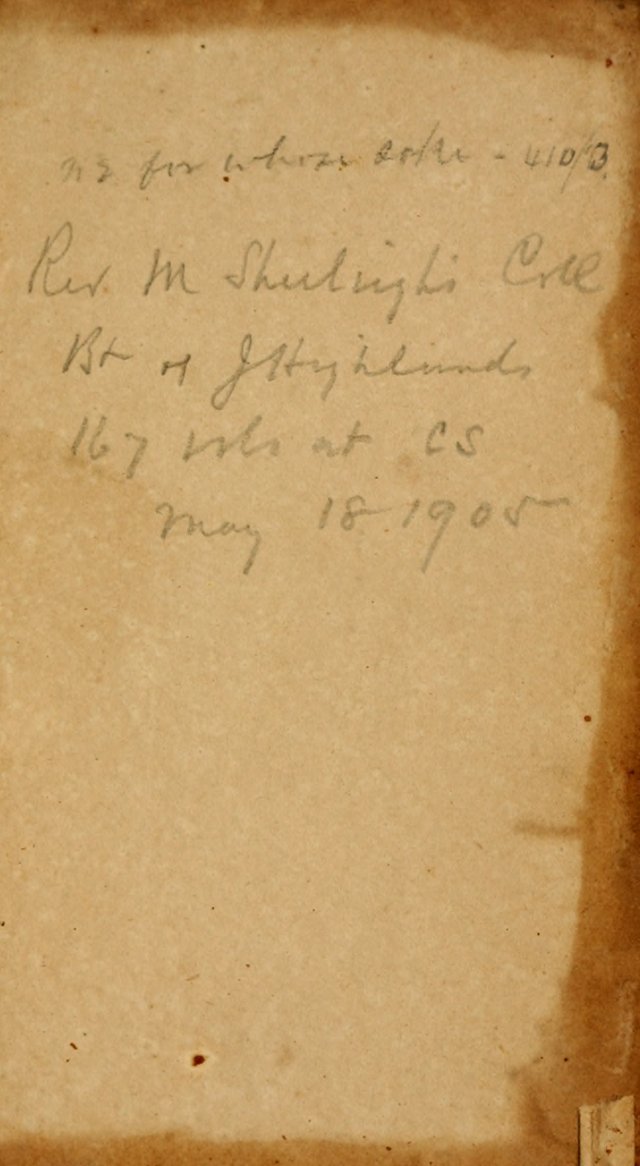 for whose sake - 410/3.
Rev. M Coll
Bt of J Highlands
167 vols at CS
May 18 1905